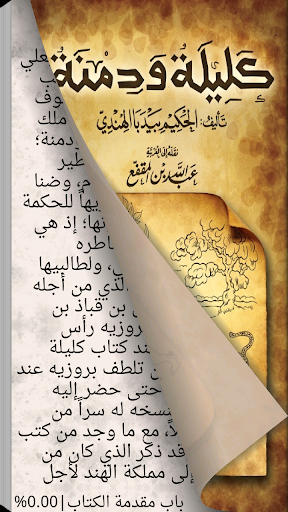 كَلِيلَة وَدِمنَة
تأليف: الحكيم بيدبا الهندي
نقله إلى العربية
عبد الله بن المقفع
ملك
دمنة؛
وضنا
للحكمة
إذ هي
ولطالبيها
من أجله
قباذ بن
بروزيه رأس
كتاب كليلة
تلطف بروزيه عند
حتى حضر إليه
نسخه له سراً من
مع ما وجد من كتب
قد ذكر الذي كان من
إلى مملكة الهند لأجل
باب مقدمة الكتاب|0.00%